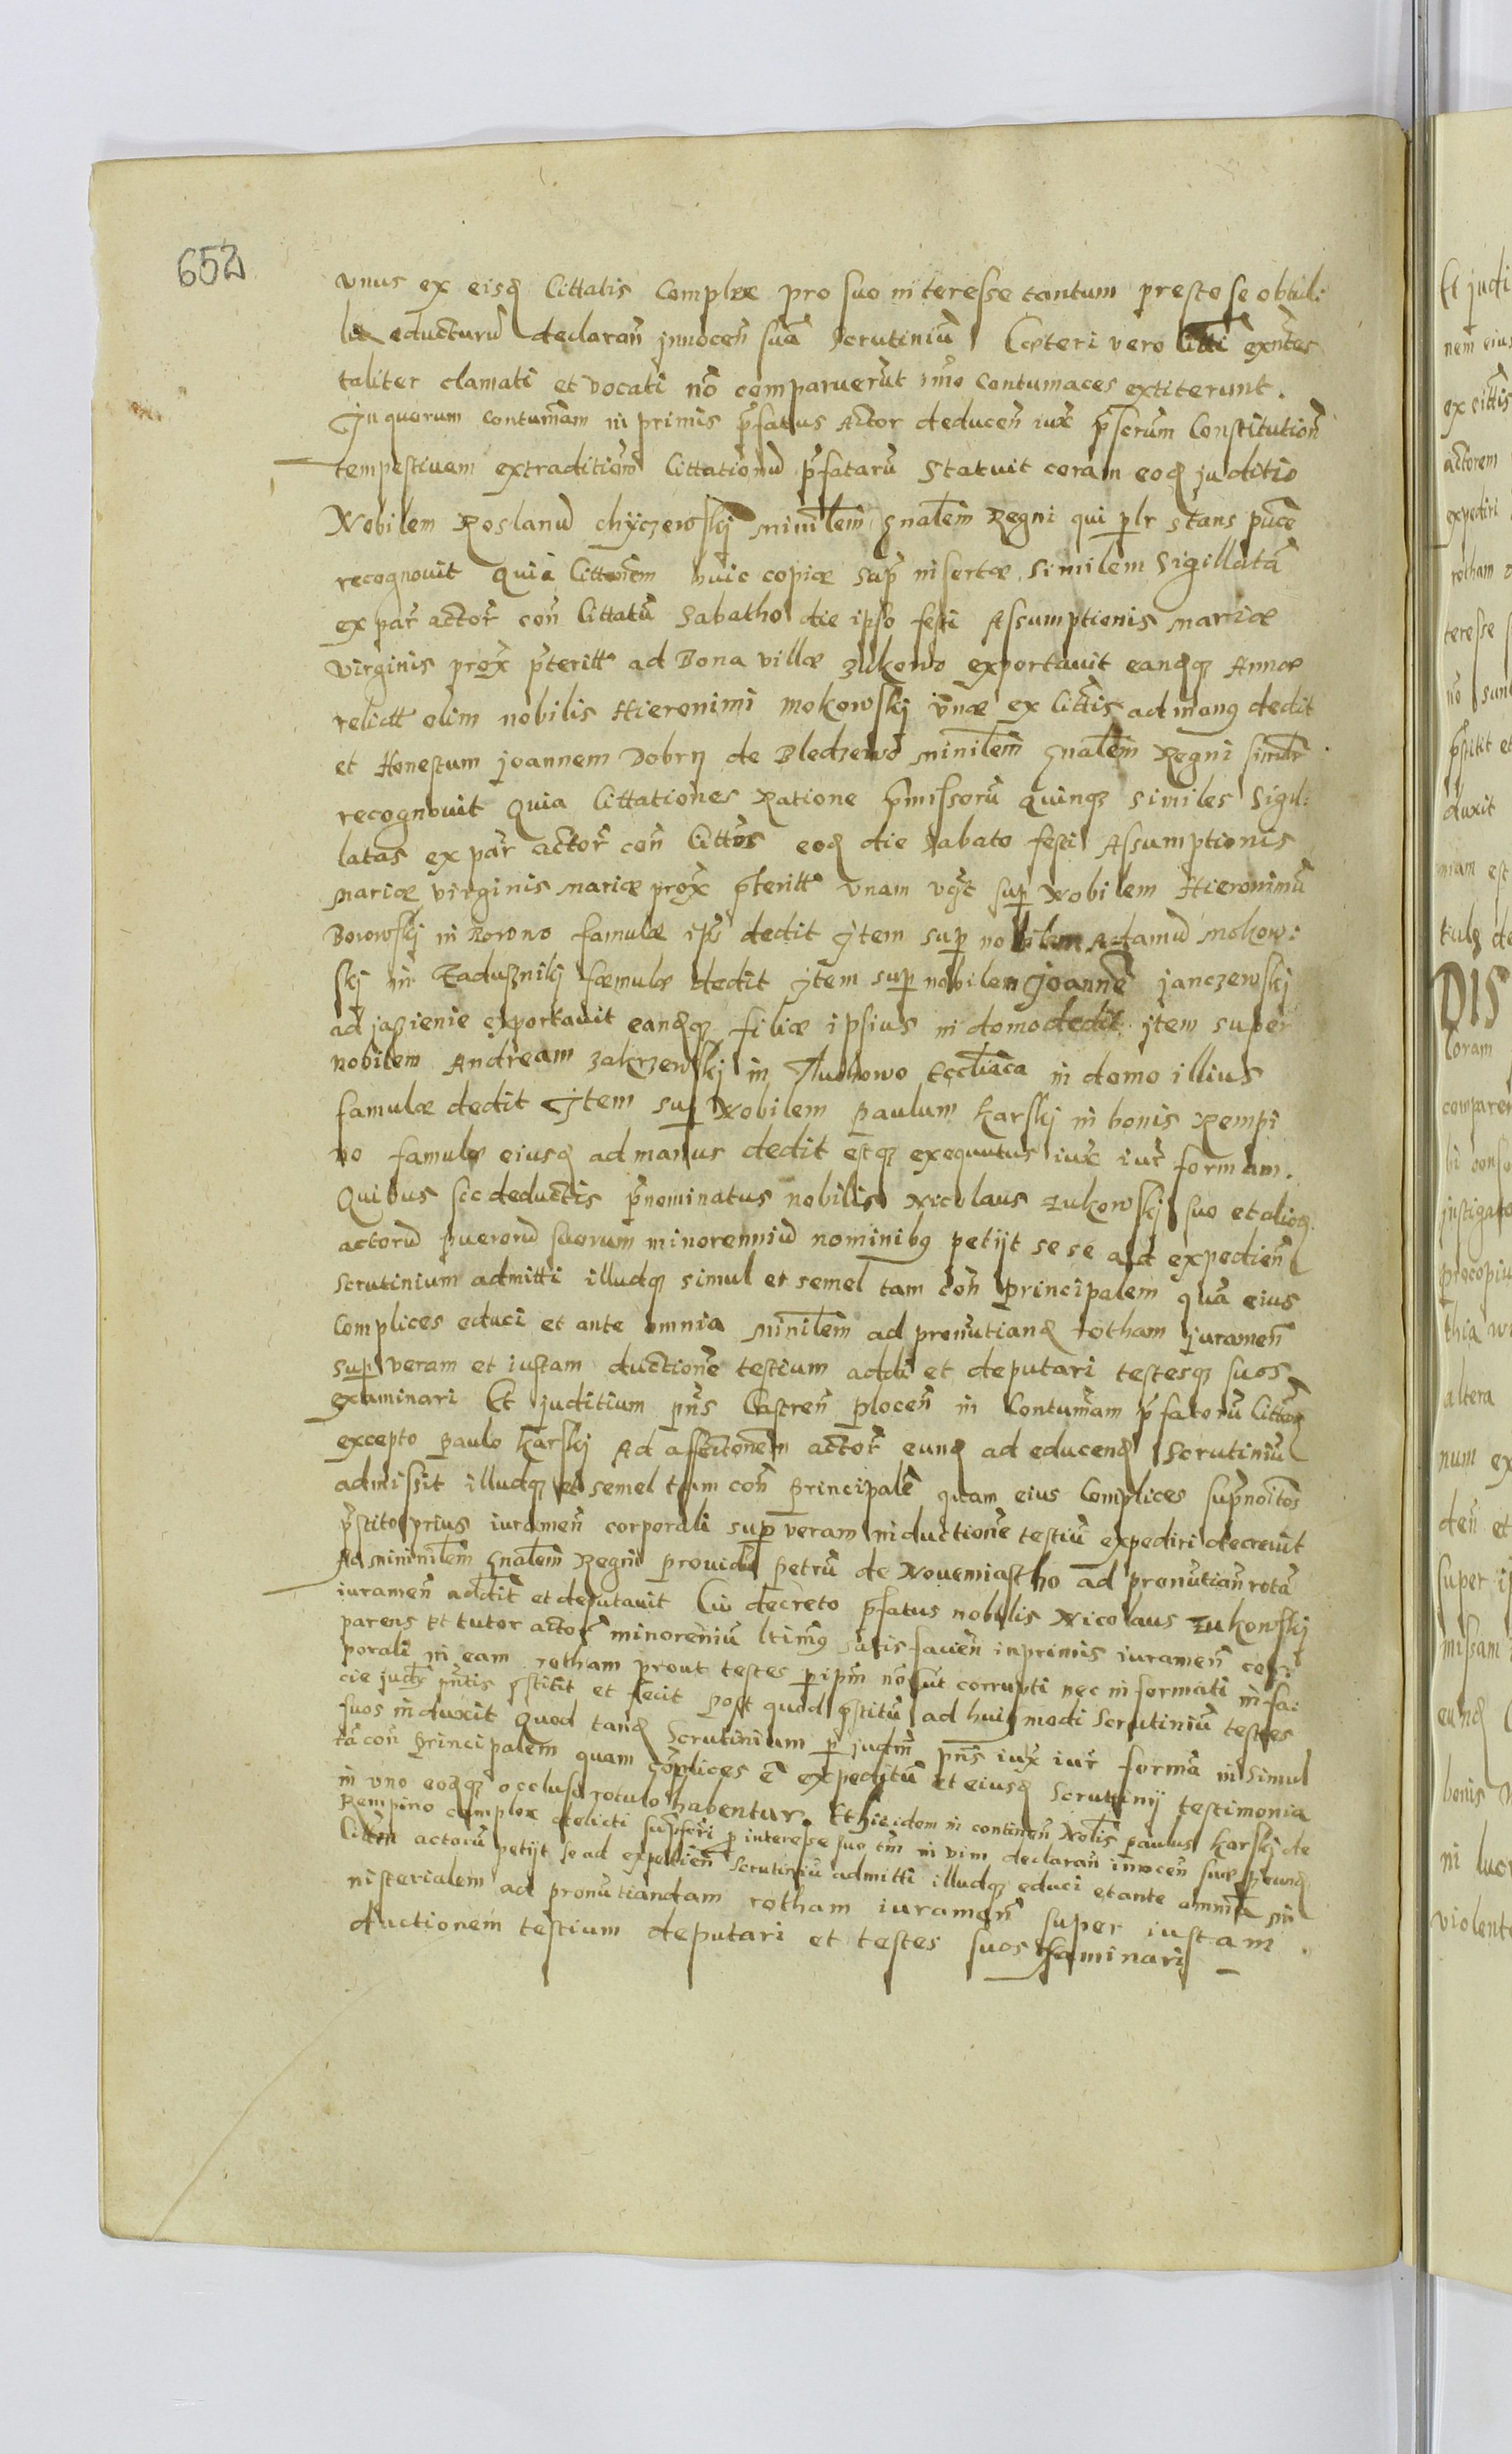 652
vnus ex eisq Cittatis Complex pro suo interesse tantum presto se obtul:
lit educturū declaran̄ jnnocen̄ suā Scrutiniū Cæteri vero Citti exn̄tes
taliter clamati et vocati nō comparuerūt imo contumaces extiterunt.
Jn quorum contumām in primis p̄fatus Actor deducen̄ iux p̄scrūm Constitution̄
tempestivam extraditiōm Cittationū p̄fatarū Statuit coram eoq juditio
Nobilem Roslanū Chyczewskj minil̄em gnal̄em Regni qui plr stans puce
recognouit Quia Citt̄onem huic copiæ sup̄ insertæ similem Sigillatā
ex par̄ actor̄ con̄ Cittatū Sabatho die ipso festi Assumptionis Mariæ
Virginis prox̄ p̄teritt° ad Bona villæ Zukowo exportauit eandqȝ Annæ
relictt olim nobilis Hieronimi Mokowskj vnæ ex Cittis ad manꝯ dedit
et Honestum joannem Dobry de Bledzewo minil̄em gnal̄em Regni similr
recognouit Quia Cittationes Ratione p̄missorū quinqȝ similes Sigil:
latas ex par̄ actor̄ con̄ Cittōs eoq die Sabato festi Assumptionis
Mariæ virginis Mariæ prox̄ p̄teritt° vnam vqt sup Nobilem Hieronimū
Borowskj in Borowo famulæ ips dedit Jtem sup nobilem Adamū Mokow:
skj in Radusznikj famulæ dedit jtem sup nobilem Joannē janczewskj
ad jazienie exportauit eandqȝ filiæ ipsius in domo dedit jtem super
nobilem Andream Zakrzewskj in Tluchowo Eccl̄iaca in domo illius
famulæ dedit Jtem sup Nobilem Paulum Karskj in bonis Rempi
no famulæ eiusq ad manus dedit estqȝ exequutus iux iur̄ formam.
Quibus sic deductis p̄nominatus nobilis Nicolaus Zukowskj suo et alioꝝ
actorū puerorū suorum minorenniū nominibꝯ petijt sese ad expedien̄
Scrutinium admitti illudqȝ simul et semel tam con̄ principalem quā eius
Complices educi et ante omnia Minil̄em ad pronūtiandq rotham juramen̄
sup veram et iustam ductionē testium addi et deputari testesqȝ suos
examinari Et juditium pn̄s Castren̄ plocen̄ in Contumām p̄fatorū Cittōꝝ
excepto Paulo Karskj Ad affect̄onem actor̄ eunq ad educendq Scrutiniū
admisit illudqȝ et semel tam con̄ principalē quam eius Complices sup̄noītos
p̄stito prius iuramen̄ corporali sup veram inductionē testiū expediri decreuit
Ad minil̄em gnal̄em Regni prouidū Petrū de Nouemiastho ad pronūtian̄ rotā
iuramen̄ addit et deputauit Cui decreto p̄fatus nobilis Nicolaus Zukowskj
parens et tutor actor̄ minoreniū ltimꝯ satisfacien̄ inprimis iuramen̄ cor:
porali in eam rotham prout testes p ipm̄ nō sūt corrupti nec informati in fa:
cie judy pn̄tis p̄stitit et fecit Post quod p̄stitū ad huiꝯmodi Scrutiniū testes
suos induxit Quod tandq Scrutinium p judm̄ pn̄s iux iur̄ formā insimul
tā con̄ Principalem quam complices ē expeditū Et eiusq Scrutinij testimonia
in vno eodqȝ occluso rotulo habentur. Et hic idem in continen̄ Nol̄is Paulus Karskj de
Rempino complex delicti sup̄scri p interesse suo tm̄ in vim declaran̄ innocen̄ suæ peunq
Cittm actorū petijt se ad expedien̄ Scrutiniū admitti illudqȝ educi et ante omnia mi
nisterialem ad pronūtiandam rotham iuramen̄ super iustam
ductionem testium deputari et testes suos Examinari